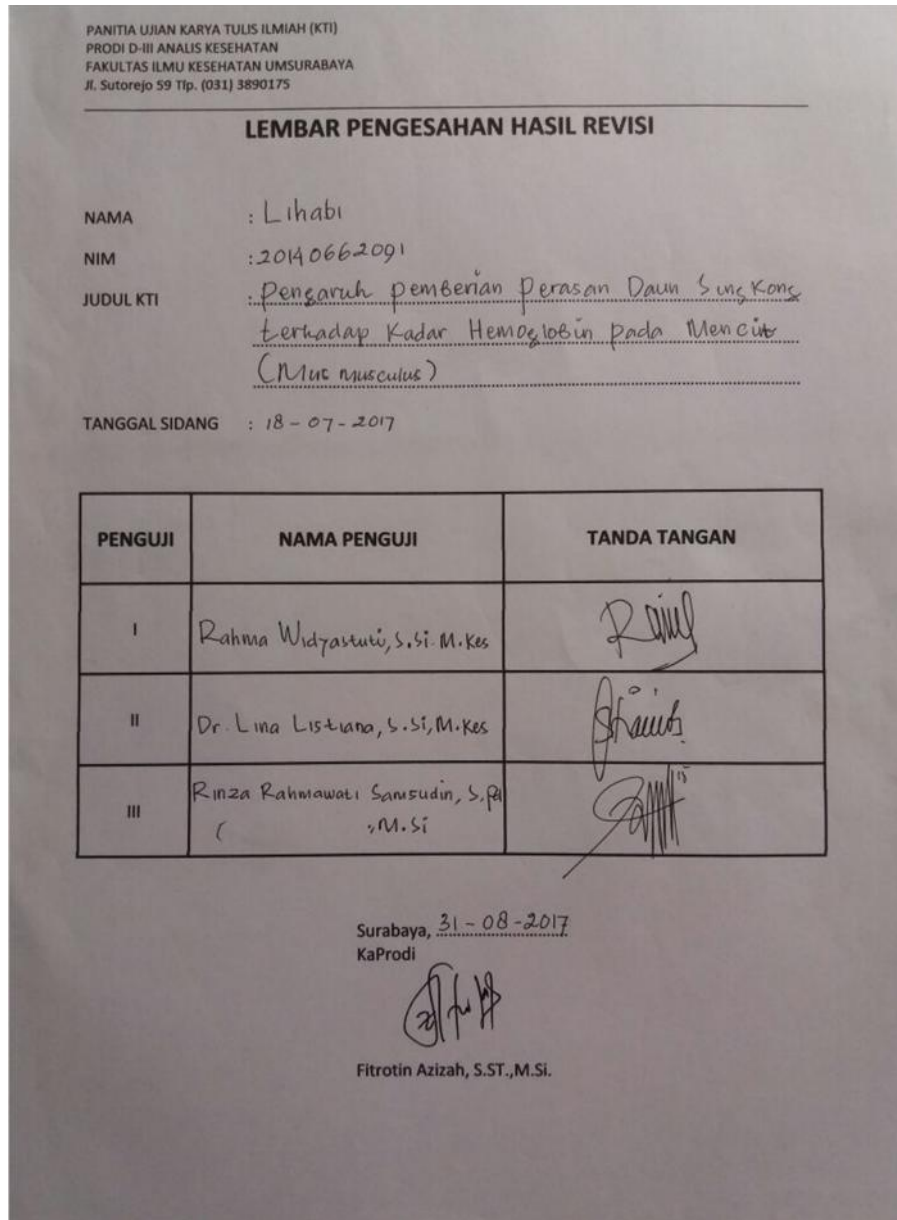 PANITIA UJIAN KARYA TULIS ILMIAH (KTI)
PRODI D-III ANALIS KESEHATAN
FAKULTAS ILMU KESEHATAN UMSURABAYA
Jl. Sutorejo 59 Tlp. (031) 3890175
LEMBAR PENGESAHAN HASIL REVISI
NAMA : Lihabi
NIM : 20140662091
JUDUL KTI : Pengaruh pemberian Perasan Daun Singkong
terhadap Kadar Hemoglobin pada Mencit
(Mus musculus)
TANGGAL SIDANG : 18-07-2017
PENGUJI NAMA PENGUJI TANDA TANGAN
I Rahma Widyastuti, S.Si. M.Kes
II Dr. Lina Listiana, S.Si, M.Kes
III Rinza Rahmawati Samsudin, S.Pd
, M.Si
Surabaya, 31-08-2017
KaProdi
Fitrotin Azizah, S.ST.,M.Si.